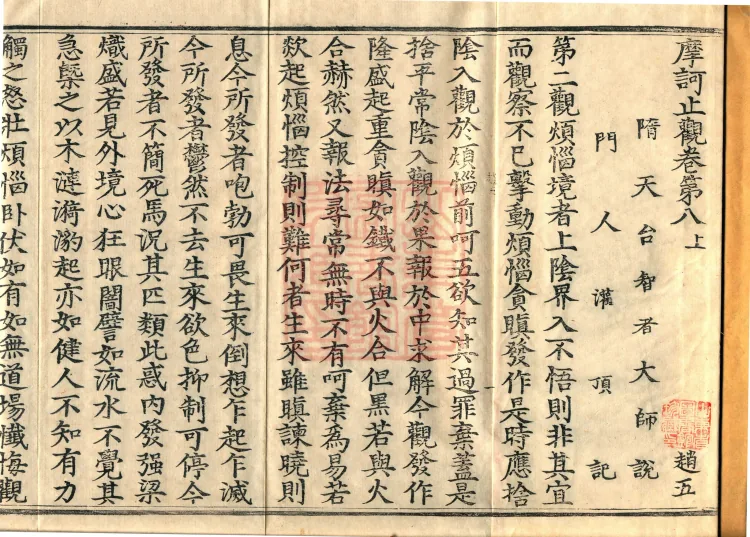 摩訶止觀卷第八上
趙五
隋天台智者大師說
門人灌頂記
第二觀煩惱境者上陰界入不悟則非其宜
而觀察不已擊動煩惱貪瞋發作是時應捨
陰入觀於煩惱前呵五欲知其過罪棄蓋是
捨平常陰入觀於果報於中求解今觀發作
隆盛起重貪瞋如鐵不與火合但黑若與火
合赫然又報法尋常無時不有呵棄為易若
欻起煩惱控制則難何者生來雖瞋諫曉則
息今所發者咆勃可畏生來倒想乍起乍滅
今所發者鬱然不去生來欲色抑制可停今
所發者不簡死馬況其匹類此惑內發强梁
熾盛若見外境心狂眼闇譬如流水不覺其
急槩之以木漣漪㶚起亦如健人不知有力
觸之怒壯煩惱臥伏如有如無道場懺悔觀